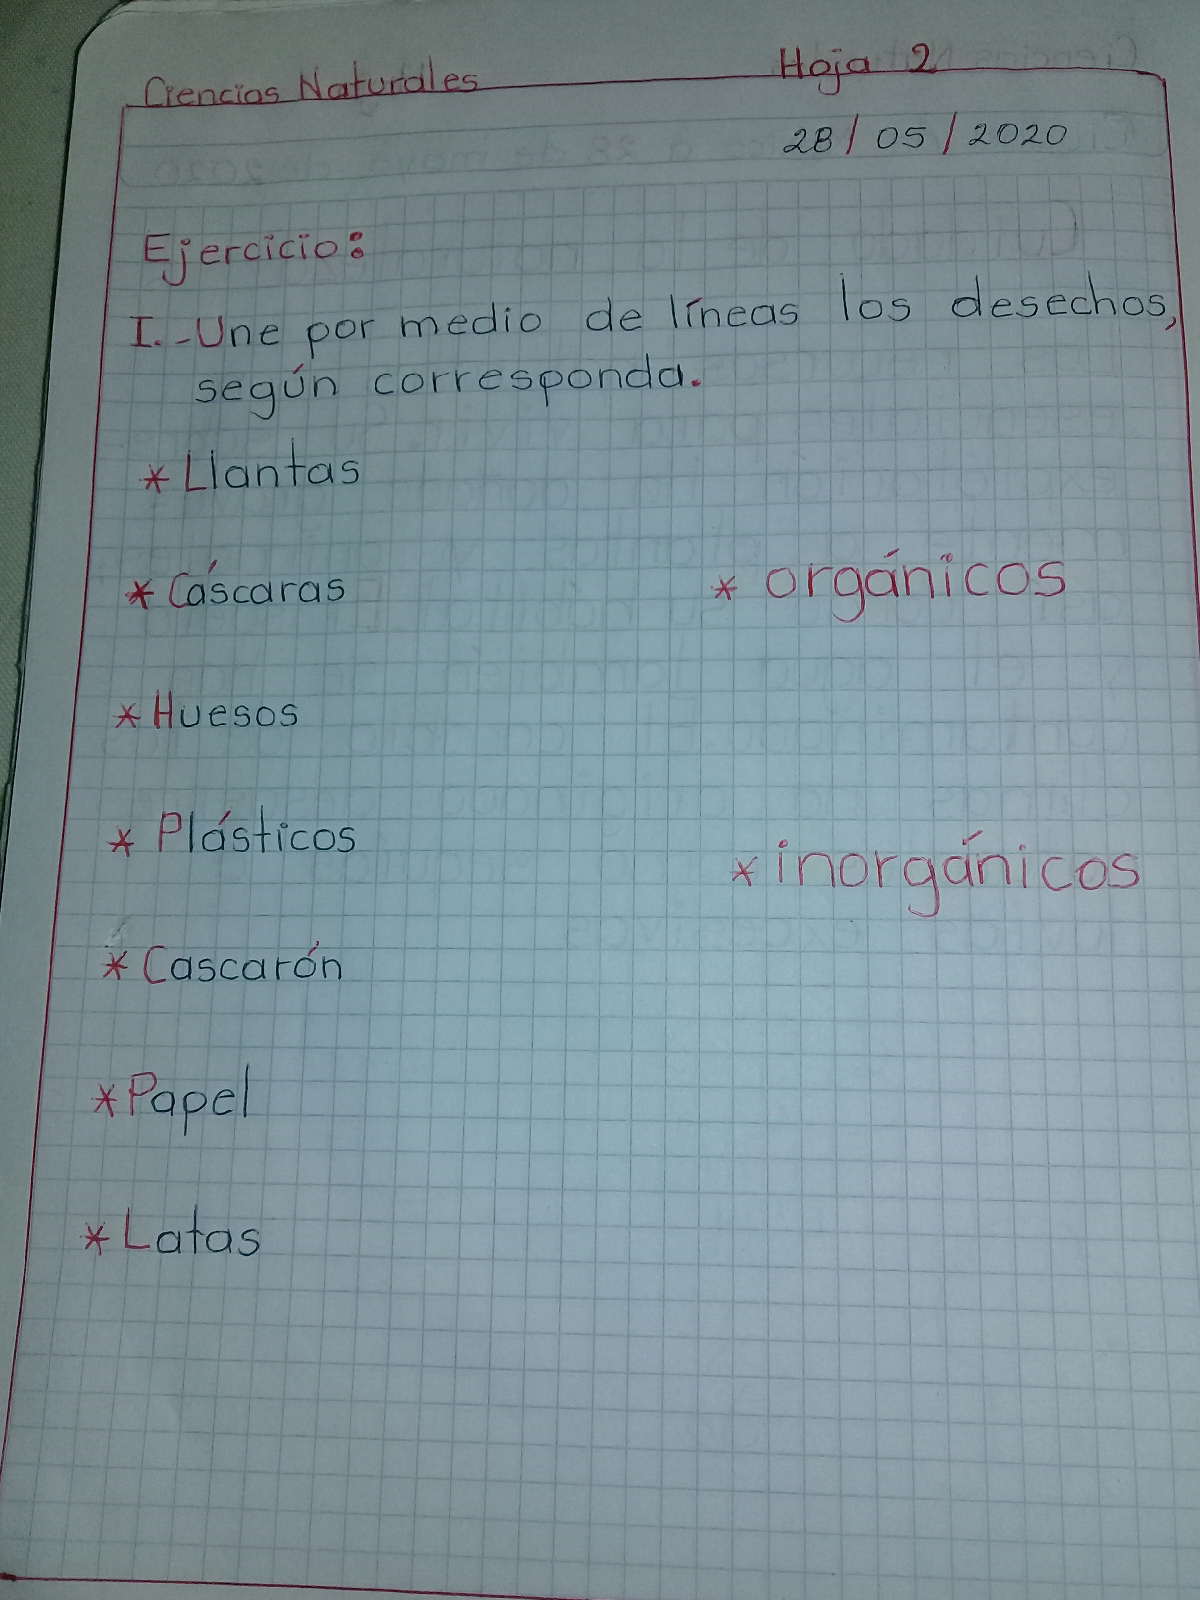 Ciencias Naturales Hoja 2
28/05/2020
Ejercicio:
I.-Une por medio de líneas los desechos,
según corresponda.
* Llantas
* Cáscaras * orgánicos
* Huesos
* Plásticos * inorgánicos
* Cascarón
* Papel
* Latas